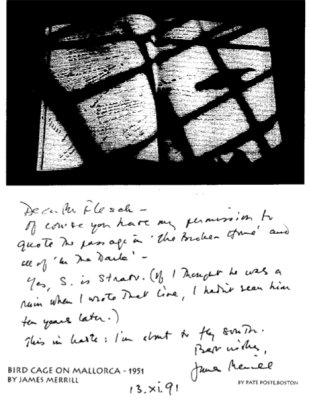 Dear Mr Flesch —
Of course you have my permission to
quote the passage in 'The Broken Home' and
all of 'In the Dark' —
Yes, S. is Strato. (If I thought he was a
ruin when I wrote that line, I hadn't seen him
ten years later.)
This in haste: I'm about to fly south.
Best wishes,
James Merrill
13.xi.91
BIRD CAGE ON MALLORCA - 1951
BY JAMES MERRILL
BY PATE POSTE.BOSTON